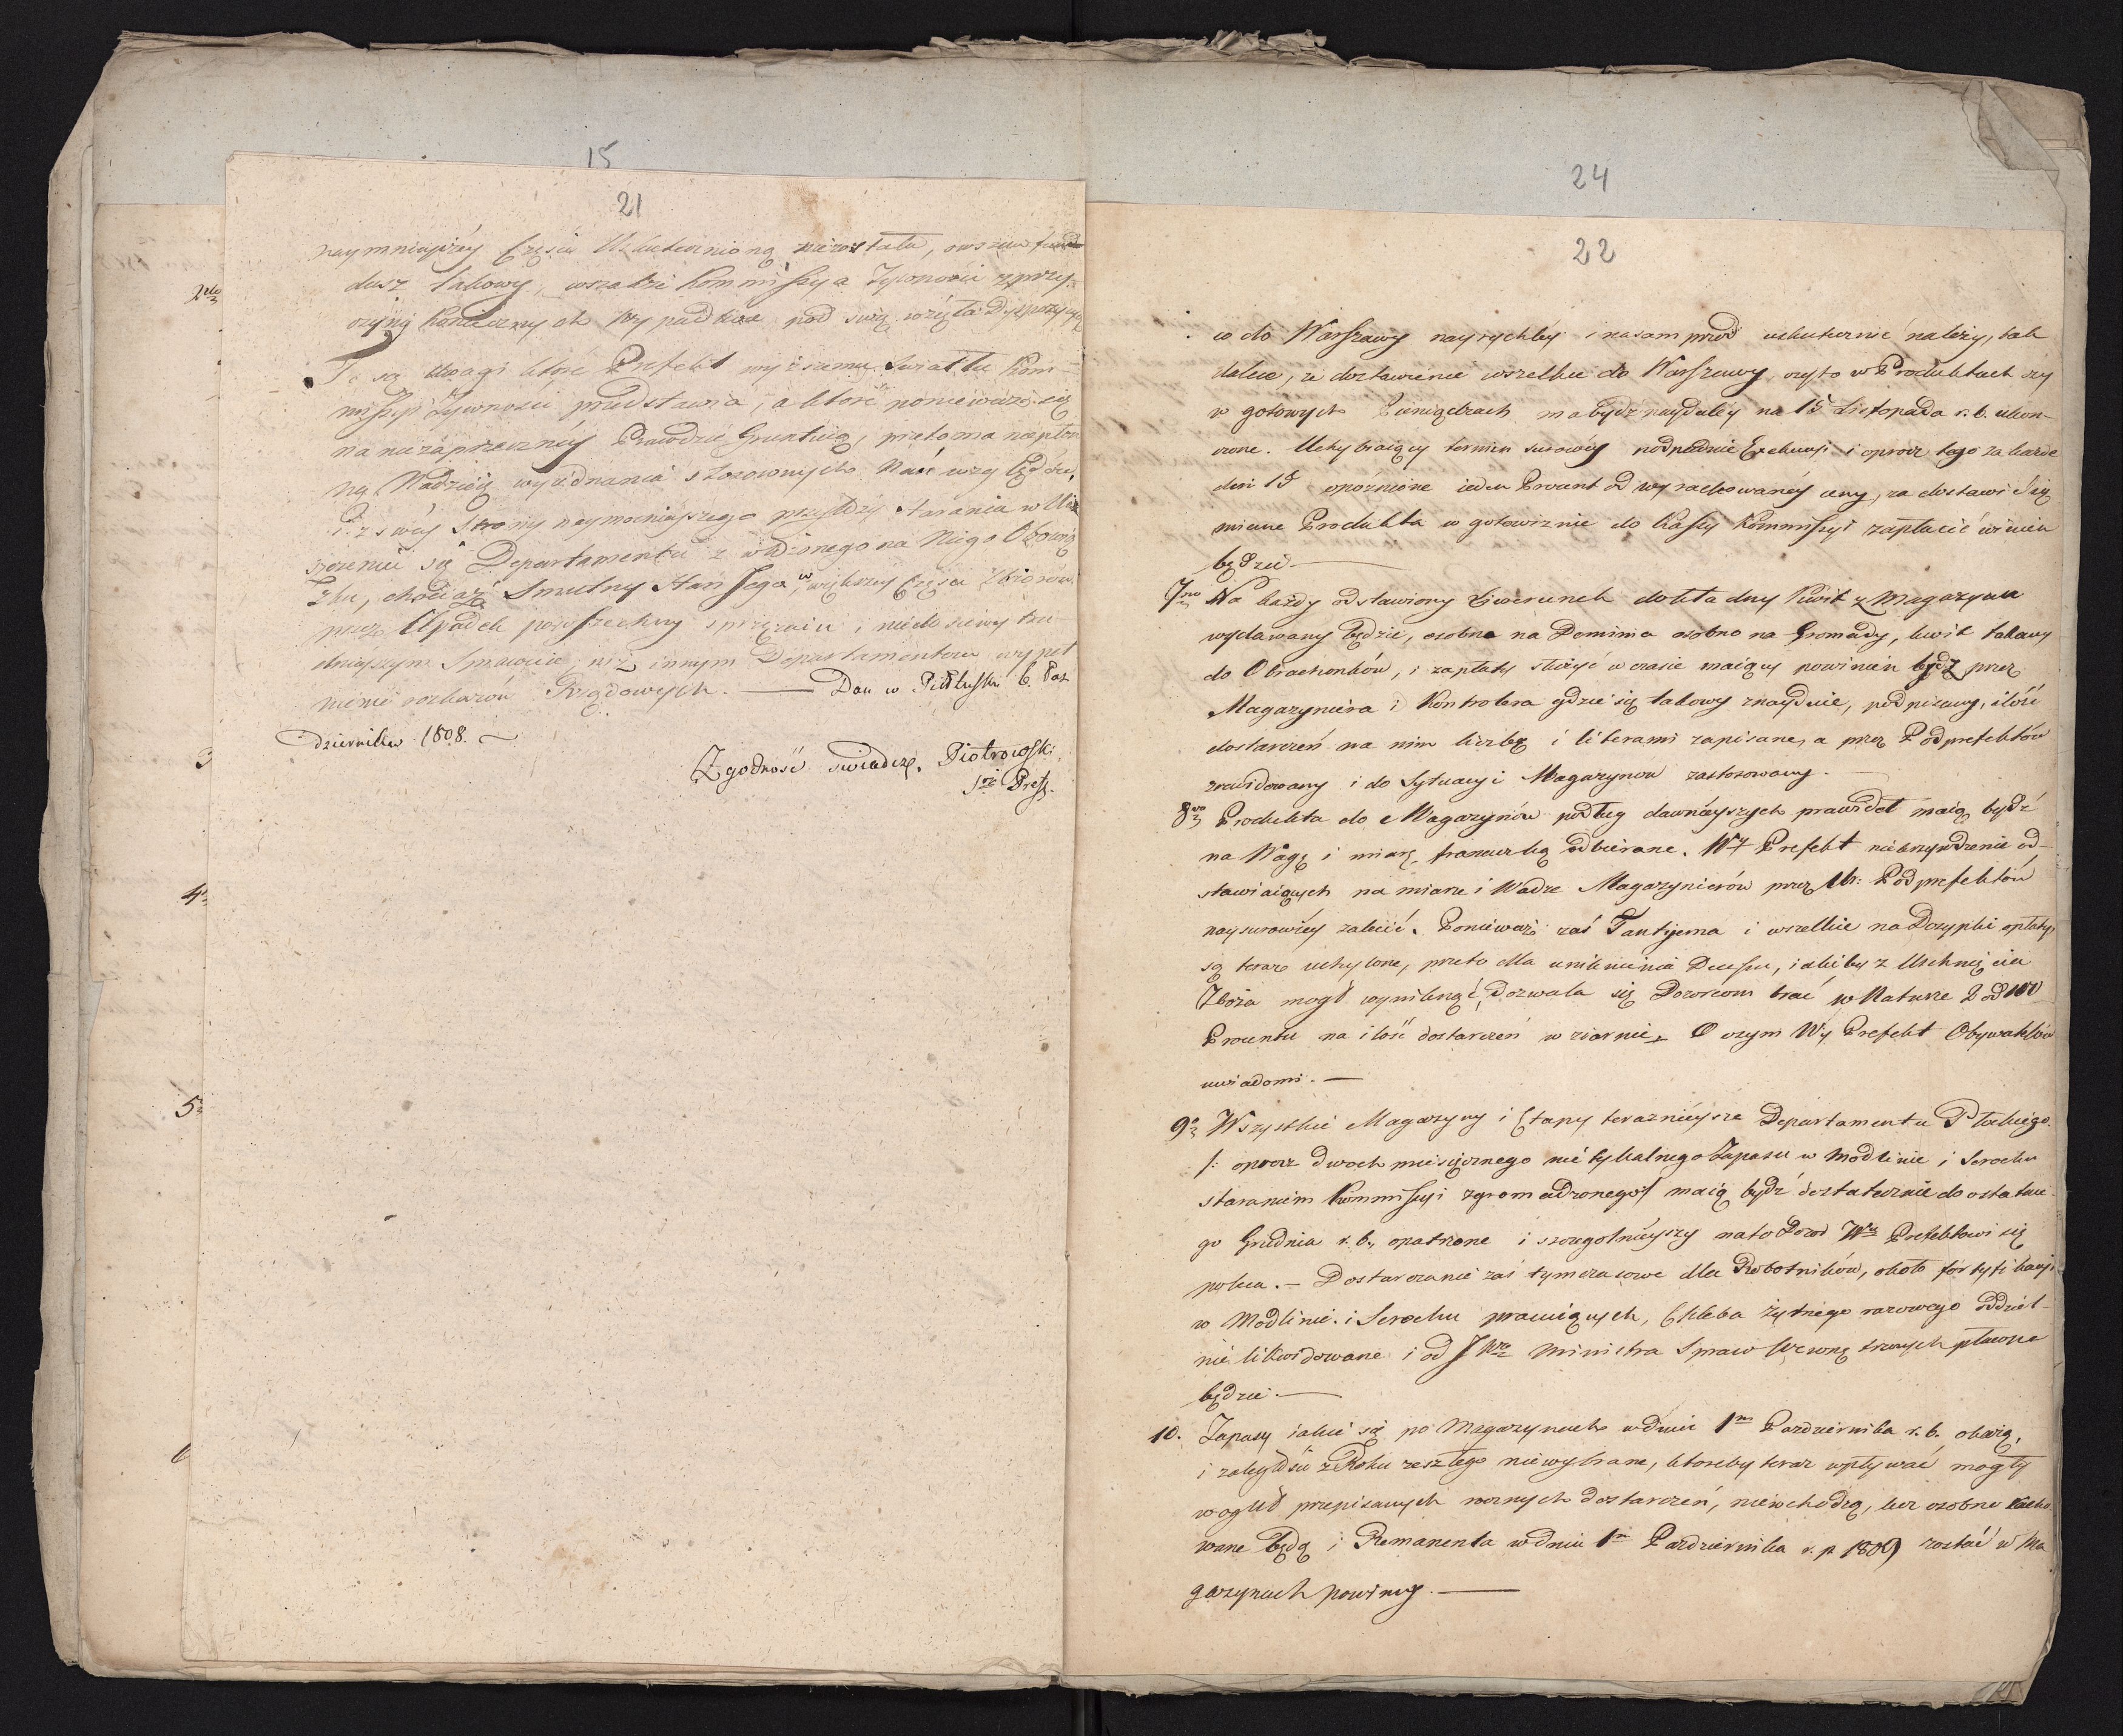 15
21
naymnieyszéy Części Uskutecznioną niezostała, owszem fun-
dusz takowy, wszakże Kommissya Żywności z przy-
czyny koniecznych Wypadków pod swą wzięła Dyspozycyą
Te są uwagi które Prefekt wyższemu Swiatłu Kom-
missyi Żywności przedstawia, a które ponieważ się
na niezaprzeczonéy Prawdzie Gruntuią, przeto ma nayplon
ną Nadzieię wyiednania stosownych Nań względów,
i z swéy Strony naymocnieyszego starania w Uis
zczeniu się Departamentu z włożonego na Niego Obowią
zku, chociaż Smutny Stan Jego w większey Części Zbiorów
przez Upadek powszechny sprzężaiu, i niedosiewy tru-
dnieyszym Sprawuie, niż innym Departamentom wypeł
nienie rozkazów Rządowych. — Dan w Pułtusku 6. Paź
dziernika 1808.
Zgodność swiadczę. Piotrowski
S. Pref.
2do
3
4
5
6
24
22
co do Warszawy nayrychléy i nasamprzód uskutecznić należy, tak
dalece, że dostawienie wszelkie do Warszawy, czyto w Produktach czy
w gotowych Pieniądzach ma bydź naydaléy na 15 Listopada r. b. ukoń-
czone. Uchybiaiący termin surowéy podpadnie Exekucyi i oprócz tego za każde
dni 15 opóźnione ieden Procent od wyrachowanéy ceny, za dostawić się
miane Produkta w gotowiznie do Kassy Kommissyi zapłacić winien
będzie —
7mo Na każdy odstawiony Liwerunek dokładny Kwit z Magazynu
wydawany będzie, osobno na Dominia osobno na Gromady, kwit takowy
do Obrachonków, i zapłaty służyć w czasie maiący powinien bydź przez
Magazyniera i Kontrolera gdzie się takowy znayduie, podpisany, ilość
dostarczeń na nim liczbą i literami zapisane, a przez Podprefektów
zrewidowany i do Sytuacyi Magazynow zastosowany.
8vo Produkta do Magazynów podług dawnieyszych prawideł maią bydź
na Wagę i miarę francuzką odbierane. Wy Prefekt niekrzywdzenie od-
stawiaiących na miarze i Wadze Magazynierów przez Ur: Podprefektów
naysurowiey zaleci. Ponieważ zaś Tantyema i wszelkie na Dozypki opłaty,
są teraz uchylone, przeto dla uniknienia Decessu, iakiby z Uschnięcia
Zboża mogł wyniknąć, dozwala się Dozorcom brać w Naturze 2 od 100
Procentu na ilość dostarczeń w ziarnie. O czym Wy Prefekt Obywatelów
uwiadomi. —
9o Wszystkie Magazyny i Etapy teraznieysze Departamentu Płockiego.
/: oprocz dwochmiesięcznego nietykalnego Zapasu w Modlinie i Serocku
staraniem Kommissyi zgromadzonego:/ maią bydź dostatecznie do ostatnie
go Grudnia r. b., opatrzone i szczegolnieyszy nato Dozor Wmu Prefektowi się
poleca. — Dostarczanie zaś tymczasowe dla Robotników, około fortyfikacyi
w Modlinie i Serocku pracuiących, Chleba żytniego razowego oddziel-
nie likwidowane i od JWgo Ministra Spraw Wewnętrznych płacone
będzie. —
10. Zapasy iakie się po Magazynach w dniu 1m Pazdziernika r. b. okażą,
i zaległości z Roku zeszłego niewybrane, któreby teraz wpływać mogły
w oguł przepisanych rocznych dostarczeń, niewchodzą, lecz osobno racho
wane będą i Remanenta w dniu 1m Pazdziernika r. p. 1809 zostać w Ma
gazynach powinny. —